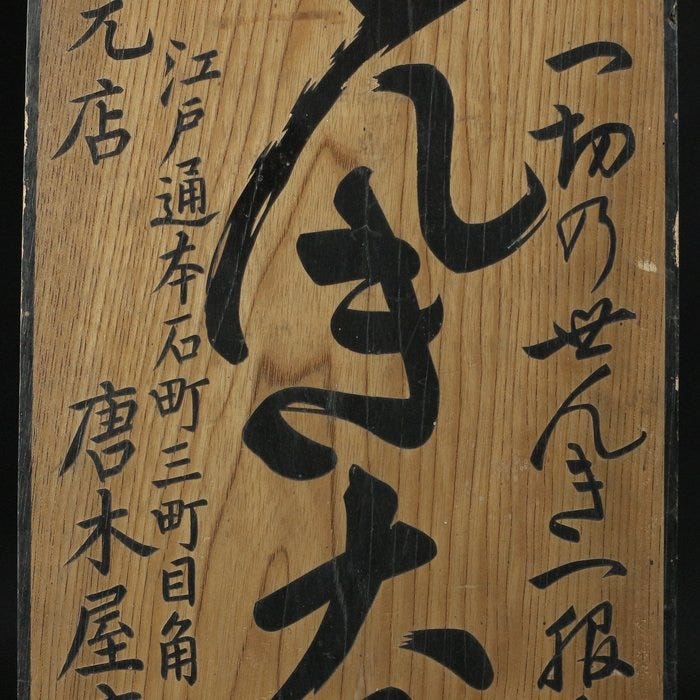 一切の世んき一服
んき大
江戸通本石町三町目角
元店 唐木屋